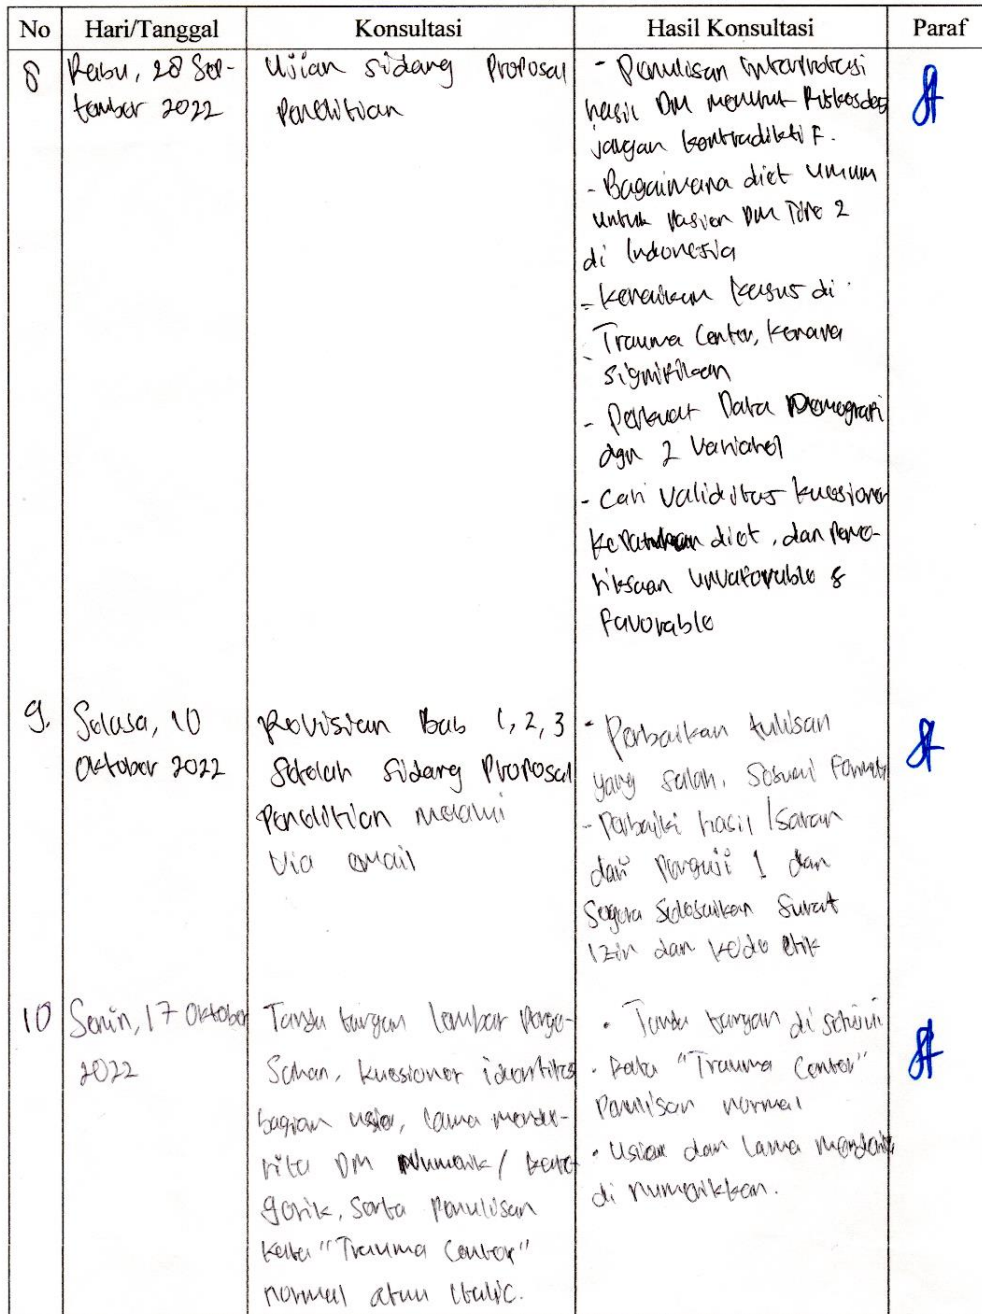 No Hari/Tanggal Konsultasi Hasil Konsultasi Paraf
8 Rabu, 28 Sep-
tember 2022
Ujian sidang Proposal
Penelitian
- Penulisan intepretasi
hasil DM menurut Riskesdas
jangan kontradiktif.
- Bagaimana diet umum
untuk pasien DM Tipe 2
di Indonesia
- kenaikan kasus di
Trauma Center, karena
signifikan
- Perkuat Data Demografi
dgn 2 Variabel
- Cari validitas kuesioner
kepatuhan diet, dan peme-
riksaan unvaforable &
favorable
9. Selasa, 10
Oktober 2022
Revisian Bab 1, 2, 3
Setelah Sidang Proposal
Penelitian melalui
Via email
- Perbaikan tulisan
yang salah, sesuai format
- Perbaiki hasil /saran
dari Penguji 1 dan
Segera selesaikan Surat
Izin dan kode etik
10 Senin, 17 Oktober
2022
Tanda tangan lembar penge-
sahan, kuesioner identitas
bagian usia, lama mende-
rita DM Numerik / kate-
gorik, serta penulisan
kata "Trauma Center"
normal atau Italic.
- Tanda tangan di setujui
- Kata "Trauma Center"
Penulisan normal
- Usia dan lama menderita
di numerikkan.